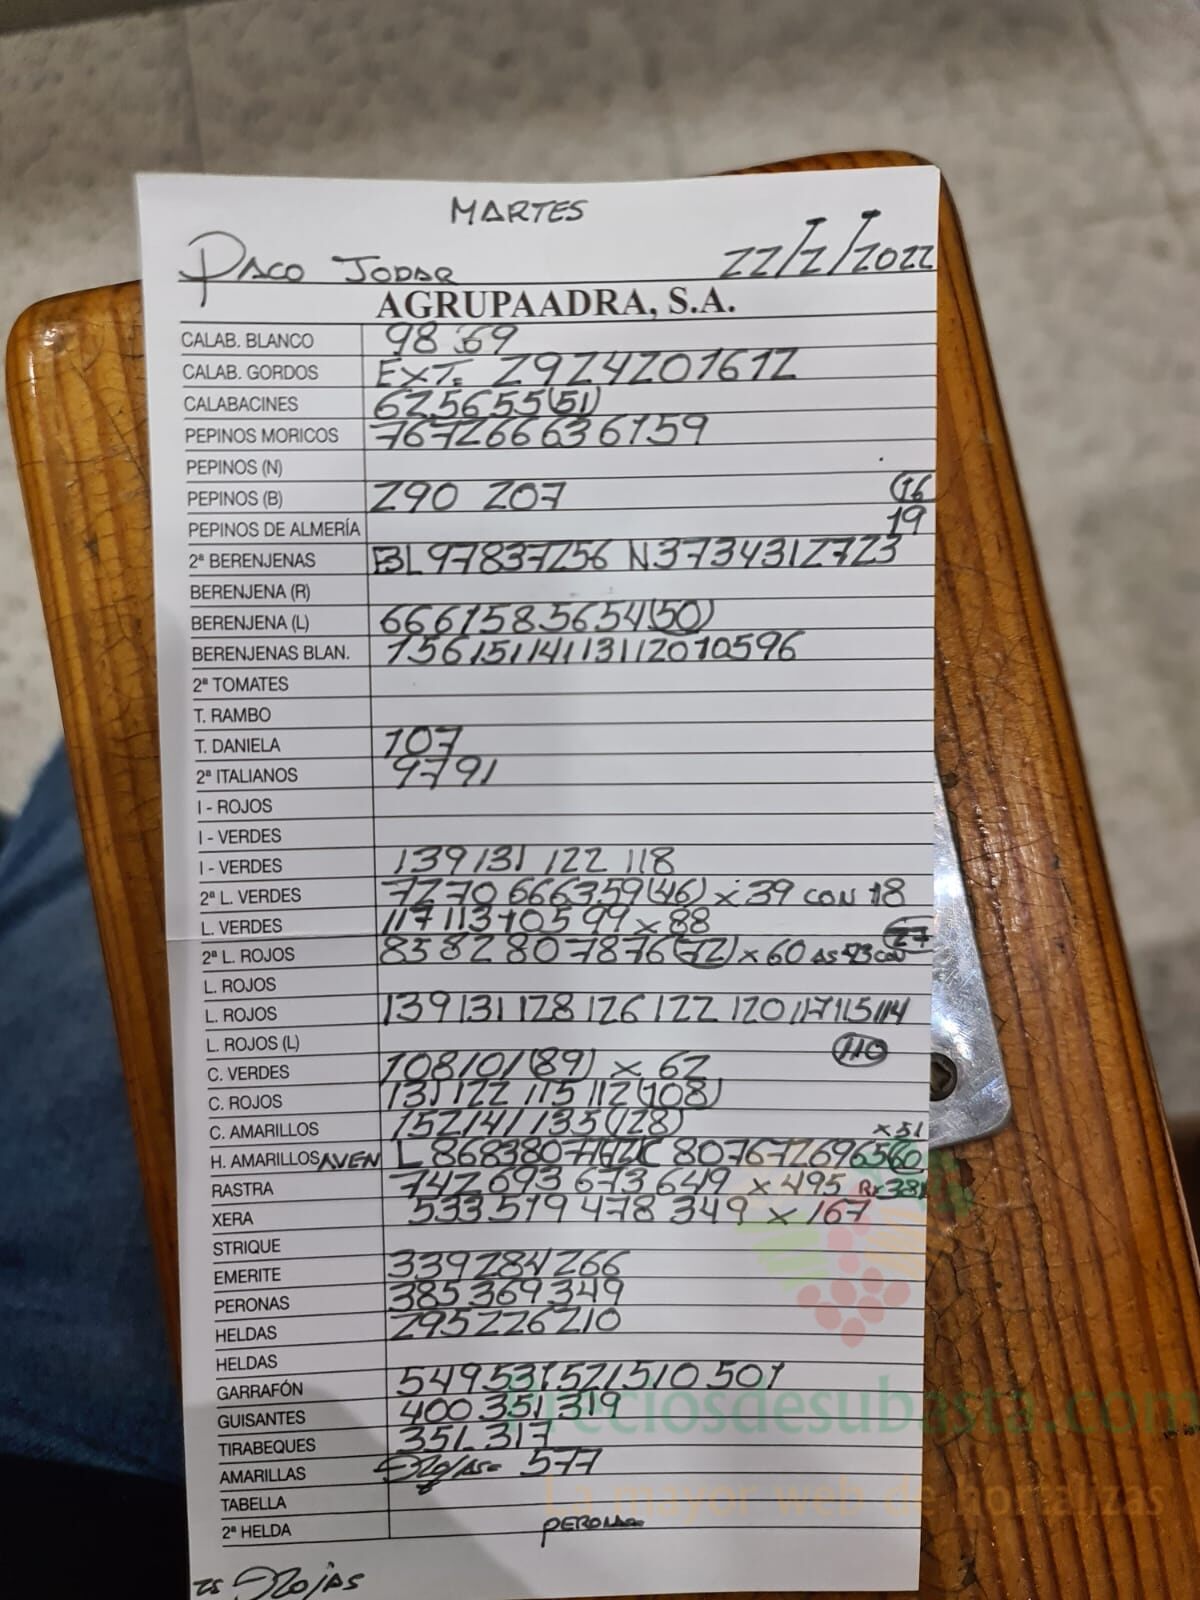 MARTES
PACO JODAR 22/2/2022
AGRUPAADRA, S.A.
CALAB. BLANCO 98 69
CALAB. GORDOS EXT. 29 24 20 16 12
CALABACINES 62 56 55 (51)
PEPINOS MORICOS 76 72 66 63 61 59
PEPINOS (N)
PEPINOS (B) 290 207 (16
PEPINOS DE ALMERÍA 19
2ª BERENJENAS BL 97 83 72 56 N 37 34 31 27 23
BERENJENA (R)
BERENJENA (L) 66 61 58 56 54 (50)
BERENJENAS BLAN. 156 151 141 131 120 105 96
2ª TOMATES
T. RAMBO
T. DANIELA 107
2ª ITALIANOS 97 91
I - ROJOS
I - VERDES
I - VERDES 139 131 122 118
2ª L. VERDES 72 70 66 63 59 (46) x 39 CON 18
L. VERDES 117 113 105 99 x 88
2ª L. ROJOS 85 82 80 78 76 (72) x 60 (27)
L. ROJOS
L. ROJOS 139 131 128 126 122 120 117 115 114
L. ROJOS (L) (110)
C. VERDES 108 101 (89) x 62
C. ROJOS 131 122 115 112 (108)
C. AMARILLOS 152 141 135 (128) x 51
H. AMARILLOS AVEN L 86 83 80 77 80 76 72 69 65 (60)
RASTRA 742 693 673 649 x 495 R= 381
XERA 533 519 478 349 x 167
STRIQUE
EMERITE 339 284 266
PERONAS 385 369 349
HELDAS 295 226 210
HELDAS
GARRAFÓN 549 531 521 510 501
GUISANTES 400 351 319
TIRABEQUES 351 317
AMARILLAS 577
TABELLA
2ª HELDA PERONA
ROJAS
Preciosdesubasta.com
La mayor web de hortalizas